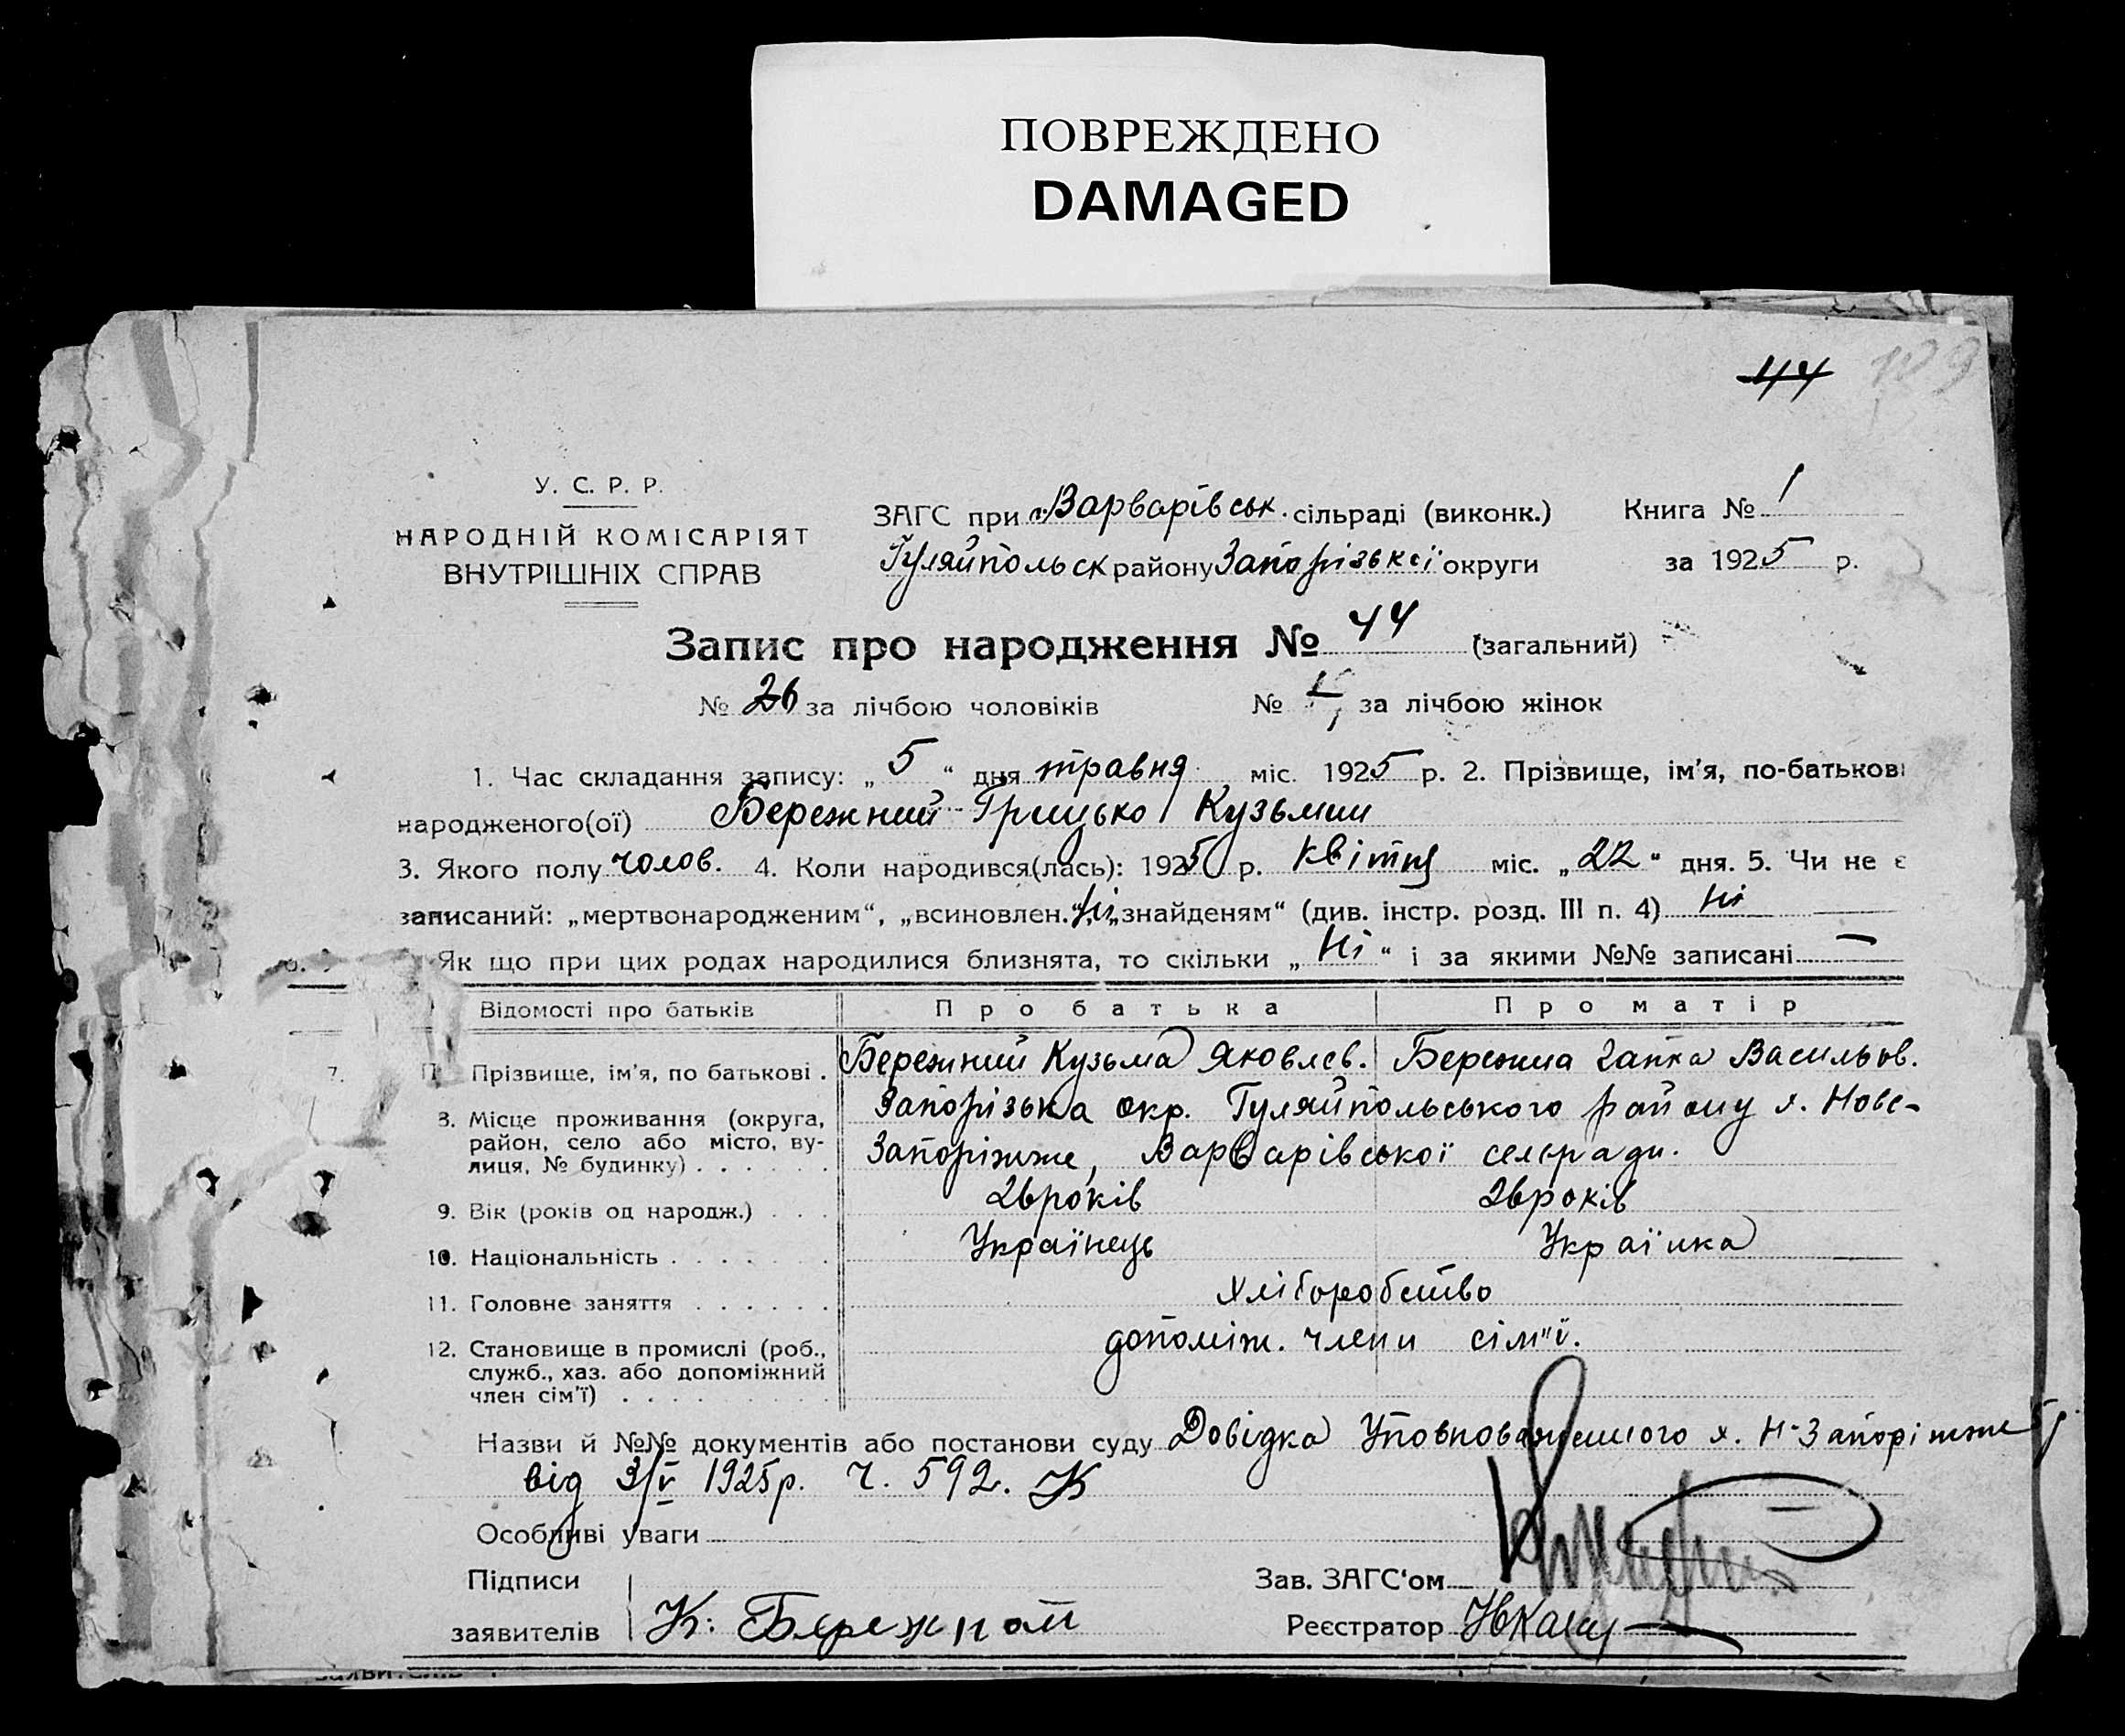 ПОВРЕЖДЕНО
DAMAGED
44 129
У. С. Р. Р.
НАРОДНІЙ КОМІСАРІЯТ
ВНУТРІШНІХ СПРАВ
ЗАГС при Варварівськ. сільраді (виконк.) Книга № 1
Гуляйпольськ району Запорізької округи за 1925 р.
Запис про народження № 44 (загальний)
№ 26 за лічбою чоловіків № за лічбою жінок
1. Час складання запису: „ 5 “ дня травня міс. 1925 р. 2. Прізвище, ім'я, по-батькові
народженого(ої) Бережний Грицько Кузьмич
3. Якого полу чолов. 4. Коли народився(лась): 1925 р. квітня міс. „ 22 “ дня. 5. Чи не є
записаний: „мертвонародженим“, „всиновлен.“ Ні „знайденям“ (див. інстр. розд. III п. 4) Ні
Як що при цих родах народилися близнята, то скільки „ Ні “ і за якими №№ записані —
Відомості про батьків Про батька Про матір
7. Прізвище, ім'я, по батькові . Бережний Кузьма Яковлев. Бережна Гапка Васильов.
8. Місце проживання (округа, район, село або місто, вулиця, № будинку) . . . . . . Запорізька окр. Гуляйпольського району х. Ново-
Запоріжже, Варварівської сельради.
9. Вік (років од народж.) . . . 26 років 26 років
10. Національність . . . . . . . Українець Українка
11. Головне заняття . . . . . . хліборобство
12. Становище в промислі (роб., допоміж. члени сім"ї.
служб., хаз. або допоміжний
член сім'ї) . . . . . . . . .
Назви й №№ документів або постанови суду Довідка Уповноваженного х. Н-Запоріжже
від 3/V 1925р. ч. 592.
Особливі уваги
Підписи Зав. ЗАГС'ом
заявителів К. Бережной Реєстратор